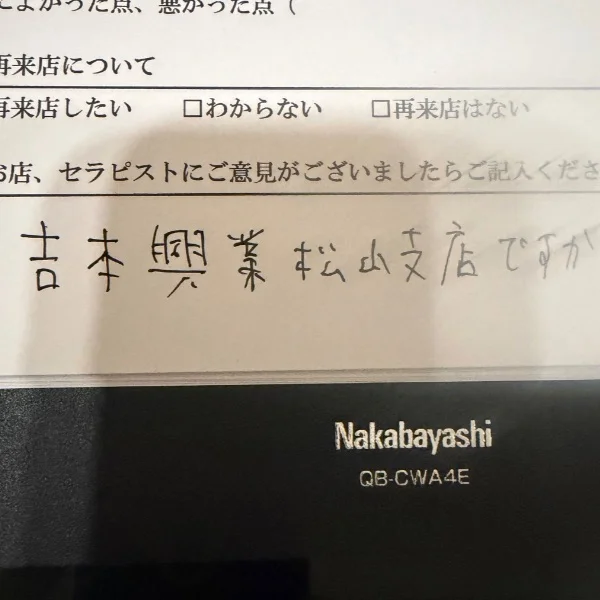 によかった点、悪かった点（
再来店について
再来店したい　□わからない　□再来店はない
お店、セラピストにご意見がございましたらご記入くださ
吉本興業松山支店ですか
Nakabayashi
QB-CWA4E